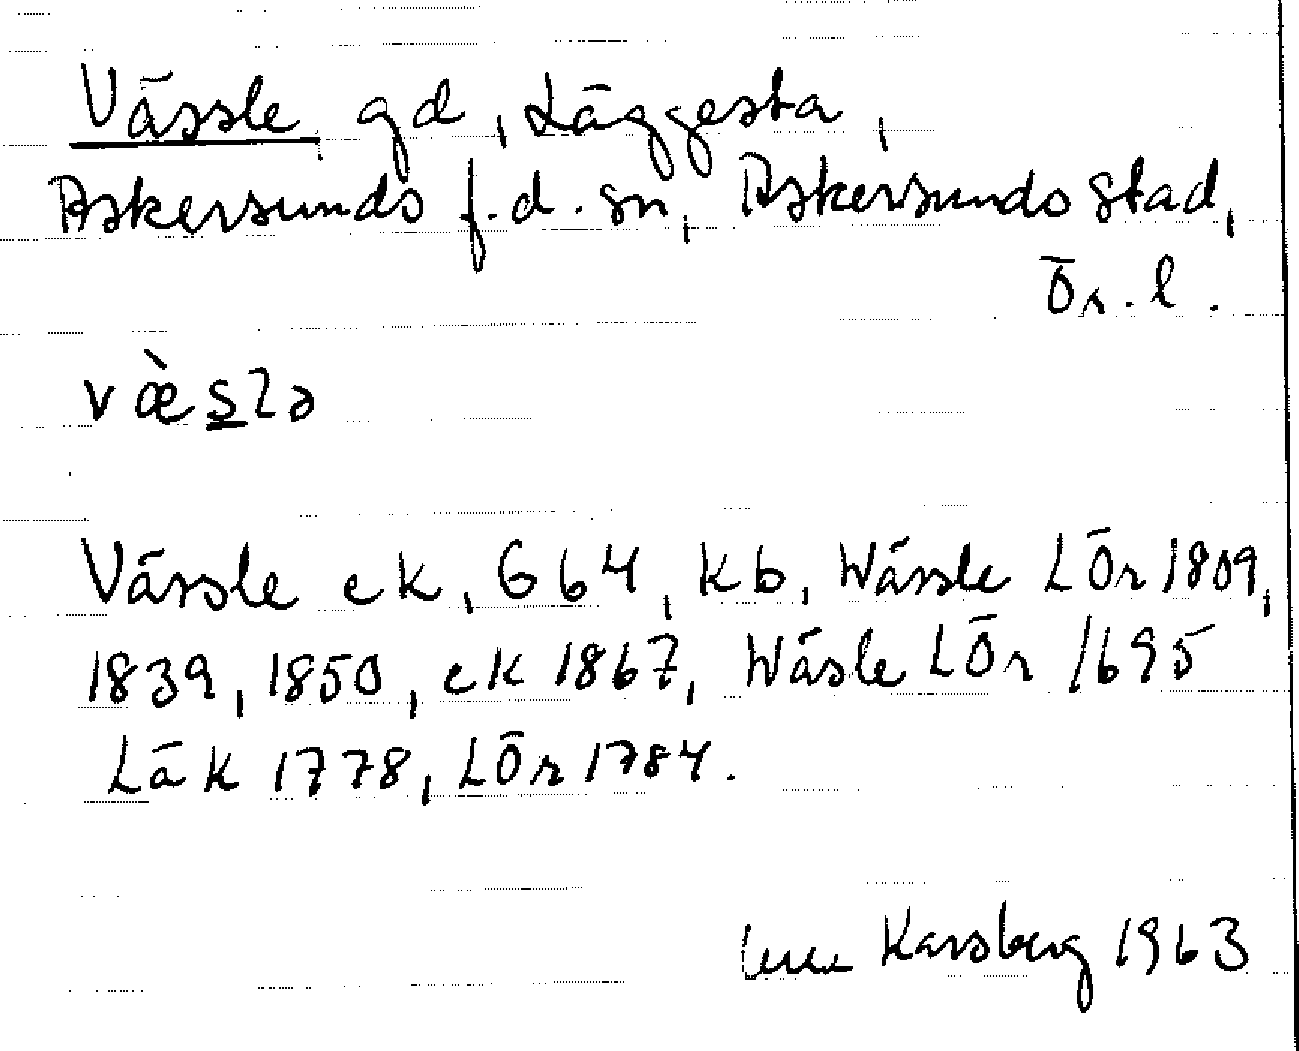 Vässle gd, Läggesta,
Askersunds f.d. sn, Askersunds stad,
Ör. l.
væ̀s̲lə
Vässle ek, Gb4, kb, Wässle LÖr 1809,
1839, 1850, ek 1867, Wäsle LÖr 1695
Läk 1778, LÖr 1784.
Karsberg 1963